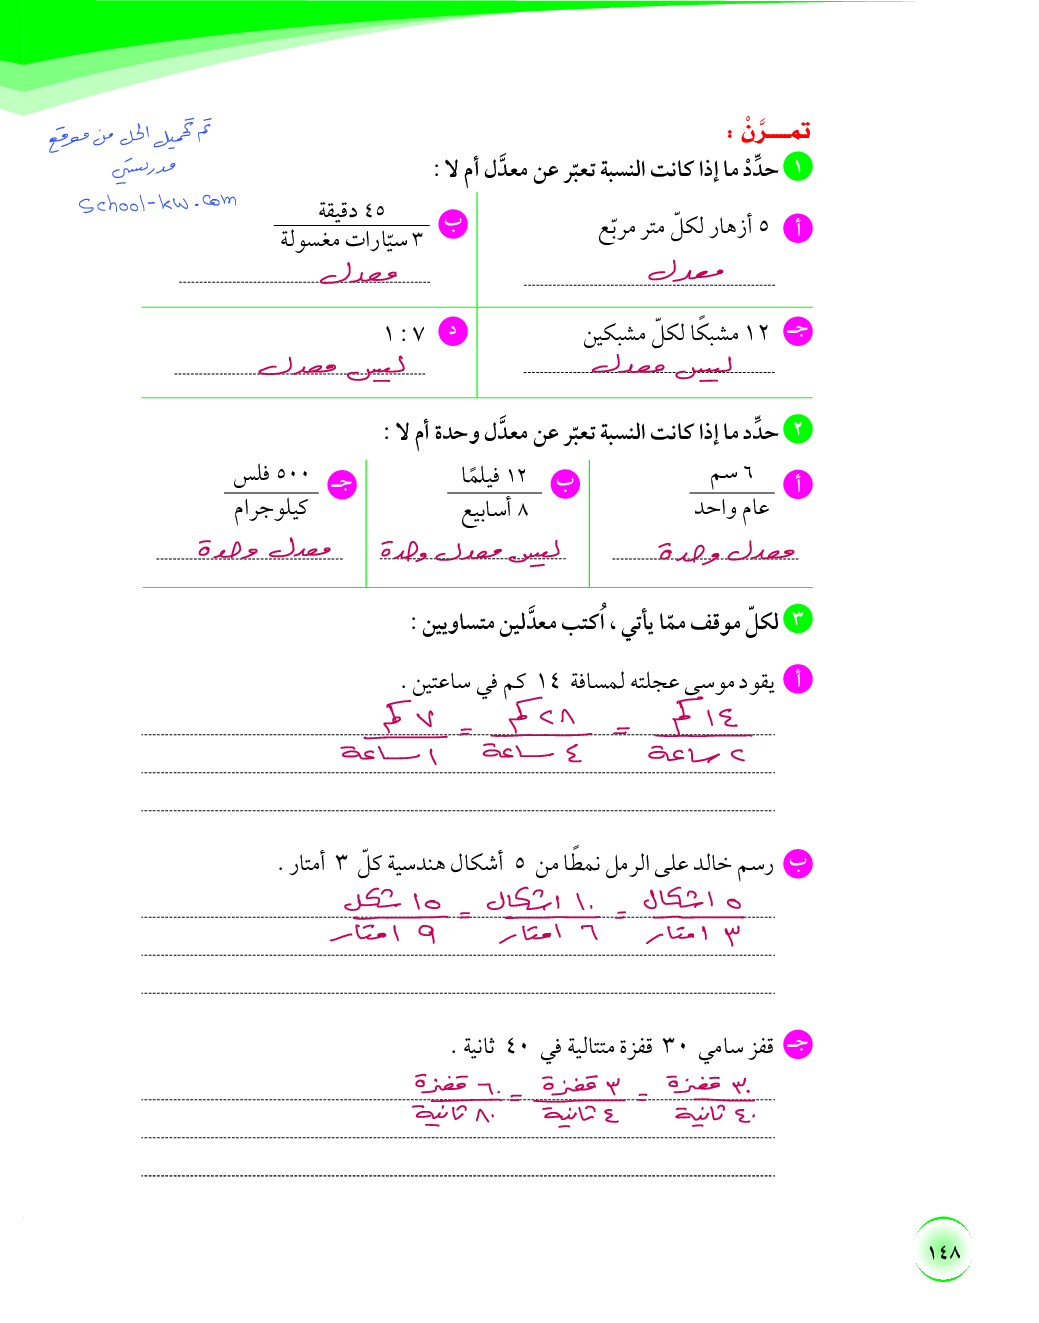 تم تحميل الحل من موقع
مدرستي
school-kw.com
تمـــرَّنْ :
١ حدِّدْ ما إذا كانت النسبة تعبّر عن معدَّل أم لا :
أ ٥ أزهار لكلّ متر مربّع
معدل
ب ٤٥ دقيقة
٣ سيّارات مغسولة
معدل
جـ ١٢ مشبكًا لكلّ مشبكين
ليس معدل
د ٧ : ١
ليس معدل
٢ حدِّد ما إذا كانت النسبة تعبّر عن معدَّل وحدة أم لا :
أ ٦ سم
عام واحد
معدل وحدة
ب ١٢ فيلمًا
٨ أسابيع
ليس معدل وحدة
جـ ٥٠٠ فلس
كيلوجرام
معدل وحدة
٣ لكلّ موقف ممّا يأتي ، اُكتب معدَّلين متساويين :
أ يقود موسى عجلته لمسافة ١٤ كم في ساعتين .
١٤ كم = ٢٨ كم = ٧ كم
٢ ساعة ٤ ساعة ١ ساعة
ب رسم خالد على الرمل نمطًا من ٥ أشكال هندسية كلّ ٣ أمتار .
٥ اشكال = ١٠ اشكال = ١٥ شكل
٣ امتار ٦ امتار ٩ امتار
جـ قفز سامي ٣٠ قفزة متتالية في ٤٠ ثانية .
٣٠ قفزة = ٣ قفزة = ٦٠ قفزة
٤٠ ثانية ٤ ثانية ٨٠ ثانية
١٤٨